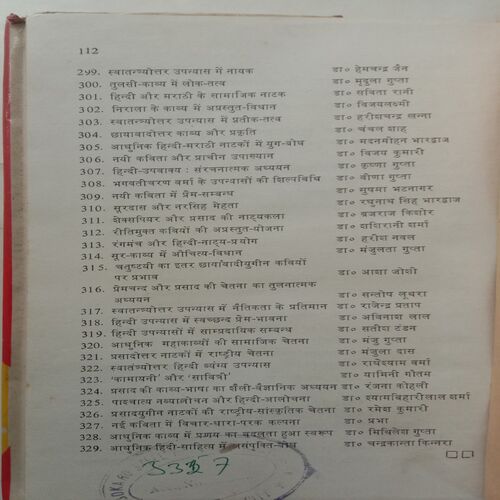 112
299. स्वातन्त्र्योत्तर उपन्यास में नायक डा० हेमचन्द्र जैन
300. तुलसी-काव्य में लोक-तत्व डा० मृदुला गुप्ता
301. हिन्दी और मराठी के सामाजिक नाटक डा० सविता रानी
302. निराला के काव्य में अप्रस्तुत-विधान डा० विजयलक्ष्मी
303. स्वातन्त्र्योत्तर उपन्यास में प्रतीक-तत्व डा० हरीशचन्द्र खन्ना
304. छायावादोत्तर काव्य और प्रकृति डा० चंचल शाह
305. आधुनिक हिन्दी-मराठी नाटकों में युग-बोध डा० मदनमोहन भारद्वाज
306. नयी कविता और प्राचीन उपाख्यान डा० विजय कुमारी
307. हिन्दी-उपवाक्य : संरचनात्मक अध्ययन डा० कृष्णा गुप्ता
308. भगवतीचरण वर्मा के उपन्यासों की शिल्पविधि डा० वीणा गुप्ता
309. नयी कविता में प्रेम-सम्बन्ध डा० सुषमा भटनागर
310. सूरदास और नरसिंह मेहता डा० रघुनाथ सिंह भारद्वाज
311. शेक्सपियर और प्रसाद की नाट्यकला डा० ब्रजराज किशोर
312. रीतिमुक्त कवियों की अप्रस्तुत-योजना डा० शशिरानी शर्मा
313. रंगमंच और हिन्दी-नाट्य-प्रयोग डा० हरीश नवल
314. सूर-काव्य में औचित्य-विधान डा० मंजुलता गुप्ता
315. चतुष्टयी का इतर छायावादीयुगीन कवियों
पर प्रभाव डा० आशा जोशी
316. प्रेमचन्द और प्रसाद की चेतना का तुलनात्मक
अध्ययन डा० सन्तोष लूथरा
317. स्वातन्त्र्योत्तर उपन्यास में नैतिकता के प्रतिमान डा० राजेन्द्र प्रताप
318. हिन्दी उपन्यास में स्वच्छन्द प्रेम-भावना डा० अविनाश लाल
319. हिन्दी उपन्यासों में साम्प्रदायिक सम्बन्ध डा० सतीश टंडन
320. आधुनिक महाकाव्यों की सामाजिक चेतना डा० मंजु गुप्ता
321. प्रसादोत्तर नाटकों में राष्ट्रीय चेतना डा० मंजुला दास
322. स्वातन्त्र्योत्तर हिन्दी व्यंग्य उपन्यास डा० राधेश्याम वर्मा
323. 'कामायनी' और 'सावित्री' डा० यामिनी गौतम
324. प्रसाद की काव्य-भाषा का शैली-वैज्ञानिक अध्ययन डा० रंजना कोहली
325. पाश्चात्य नव्यालोचन और हिन्दी-आलोचना डा० श्यामबिहारीलाल शर्मा
326. प्रसादयुगीन नाटकों की राष्ट्रीय-सांस्कृतिक चेतना डा० रमेश कुमारी
327. नई कविता में विचार-धारा-परक कल्पना डा० प्रभा
328. आधुनिक काव्य में प्रणय का बदलता हुआ स्वरूप डा० मिथिलेश गुप्ता
329. आधुनिक हिन्दी-साहित्य में डा० चन्द्रकान्ता किनरा